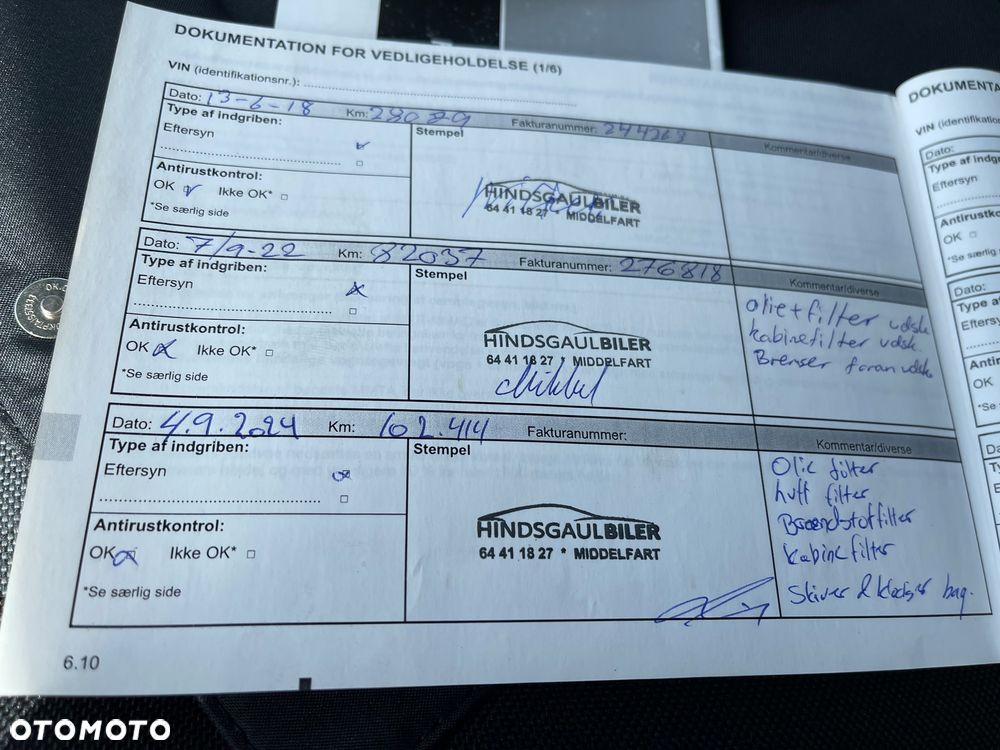 DOKUMENTATION FOR VEDLIGEHOLDELSE (1/6)
VIN (identifikationsnr.):
Dato: 13-6-18 Km: 28089 Fakturanummer: 244263
Type af indgriben: Stempel Kommentar/diverse
Eftersyn
Antirustkontrol:
OK Ikke OK*
*Se særlig side
HINDSGAULBILER
64 41 18 27 * MIDDELFART
Dato: 7/9-22 Km: 82037 Fakturanummer: 276818
Type af indgriben: Stempel Kommentar/diverse
Eftersyn
Antirustkontrol:
OK Ikke OK*
*Se særlig side
HINDSGAULBILER
64 41 18 27 * MIDDELFART
Mikkel
olie+filter udsk.
kabinefilter udsk.
Bremser foran udsk.
Dato: 4.9.2024 Km: 102.414 Fakturanummer:
Type af indgriben: Stempel Kommentar/diverse
Eftersyn
Antirustkontrol:
OK Ikke OK*
*Se særlig side
HINDSGAULBILER
64 41 18 27 * MIDDELFART
Olie filter
Luft filter
Brændstoffilter
Kabinefilter
Skiver & klodser bag.
6.10
DOKUMENTA
VIN (identifikation
Dato:
Type af indg
Eftersyn
Antirustko
OK
*Se særlig
Dato:
Type a
Eftersy
Antir
OK
*Se
OTOMOTO